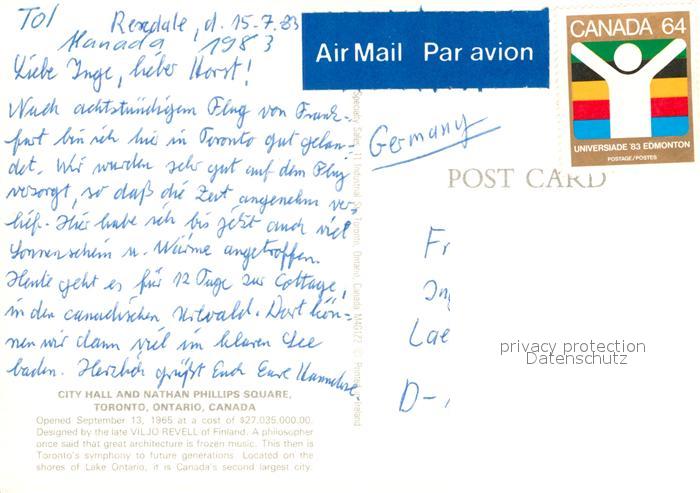 TO1
Rexdale, d. 15.7.83
Kanada 1983
Liebe Inge, lieber Horst!
Nach achtstündigem Flug von Frank-
furt bin ich hier in Toronto gut gelan-
det. Wir wurden sehr gut auf dem Flug
versorgt, so daß die Zeit angenehm ver-
lief. Hier habe ich bis jetzt auch viel
Sonnenschein u. Wärme angetroffen.
Heute geht es für 12 Tage zur Cottage,
in den canadischen Urwald. Dort kön-
nen wir dann viel im klaren See
baden. Herzlich grüßt Euch Eure Hannelore
CITY HALL AND NATHAN PHILLIPS SQUARE,
TORONTO, ONTARIO, CANADA
Opened September 13, 1965 at a cost of $27,035,000.00.
Designed by the late VILJO REVELL of Finland. A philosopher
once said that great architecture is frozen music. This then is
Toronto's symphony to future generations. Located on the
shores of Lake Ontario, it is Canada's second largest city.
Specialty Sales, 11 Industrial St., Toronto, Ontario, Canada M4G1Z2 © Printed Ireland
Air Mail Par avion
CANADA 64
UNIVERSIADE '83 EDMONTON
POSTAGE/POSTES
Germany
POST CARD
Fr
In
Lae
D-
privacy protection
Datenschutz